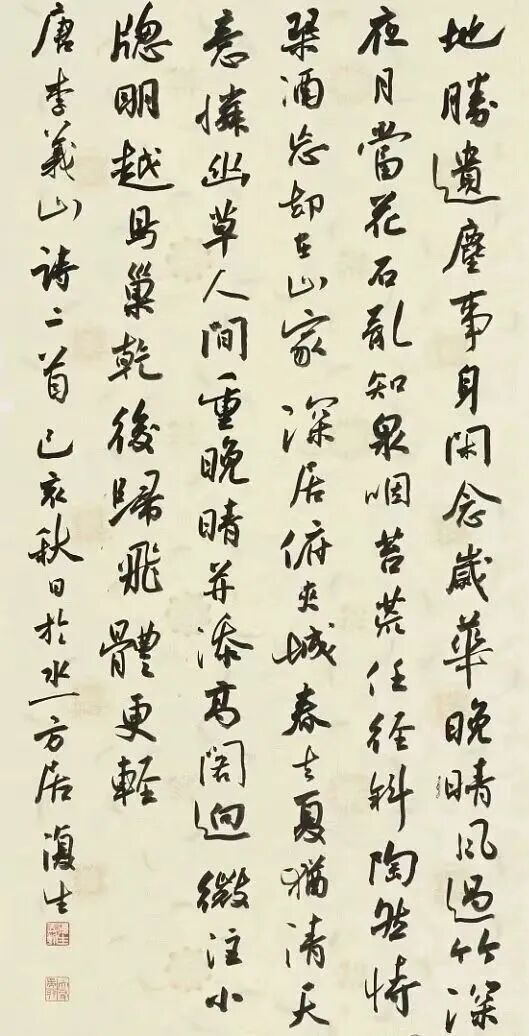 地勝遺塵事身閑念歲華晚晴風過竹深
夜月當花石亂知泉咽苔荒任徑斜陶然恃
琴酒忘却在山家 深居俯夾城春去夏猶清天
意憐幽草人間重晚晴并添高閣迥微注小
牕明越鳥巢乾後歸飛體更輕
唐李義山詩二首 己亥秋日於水一方居 復生